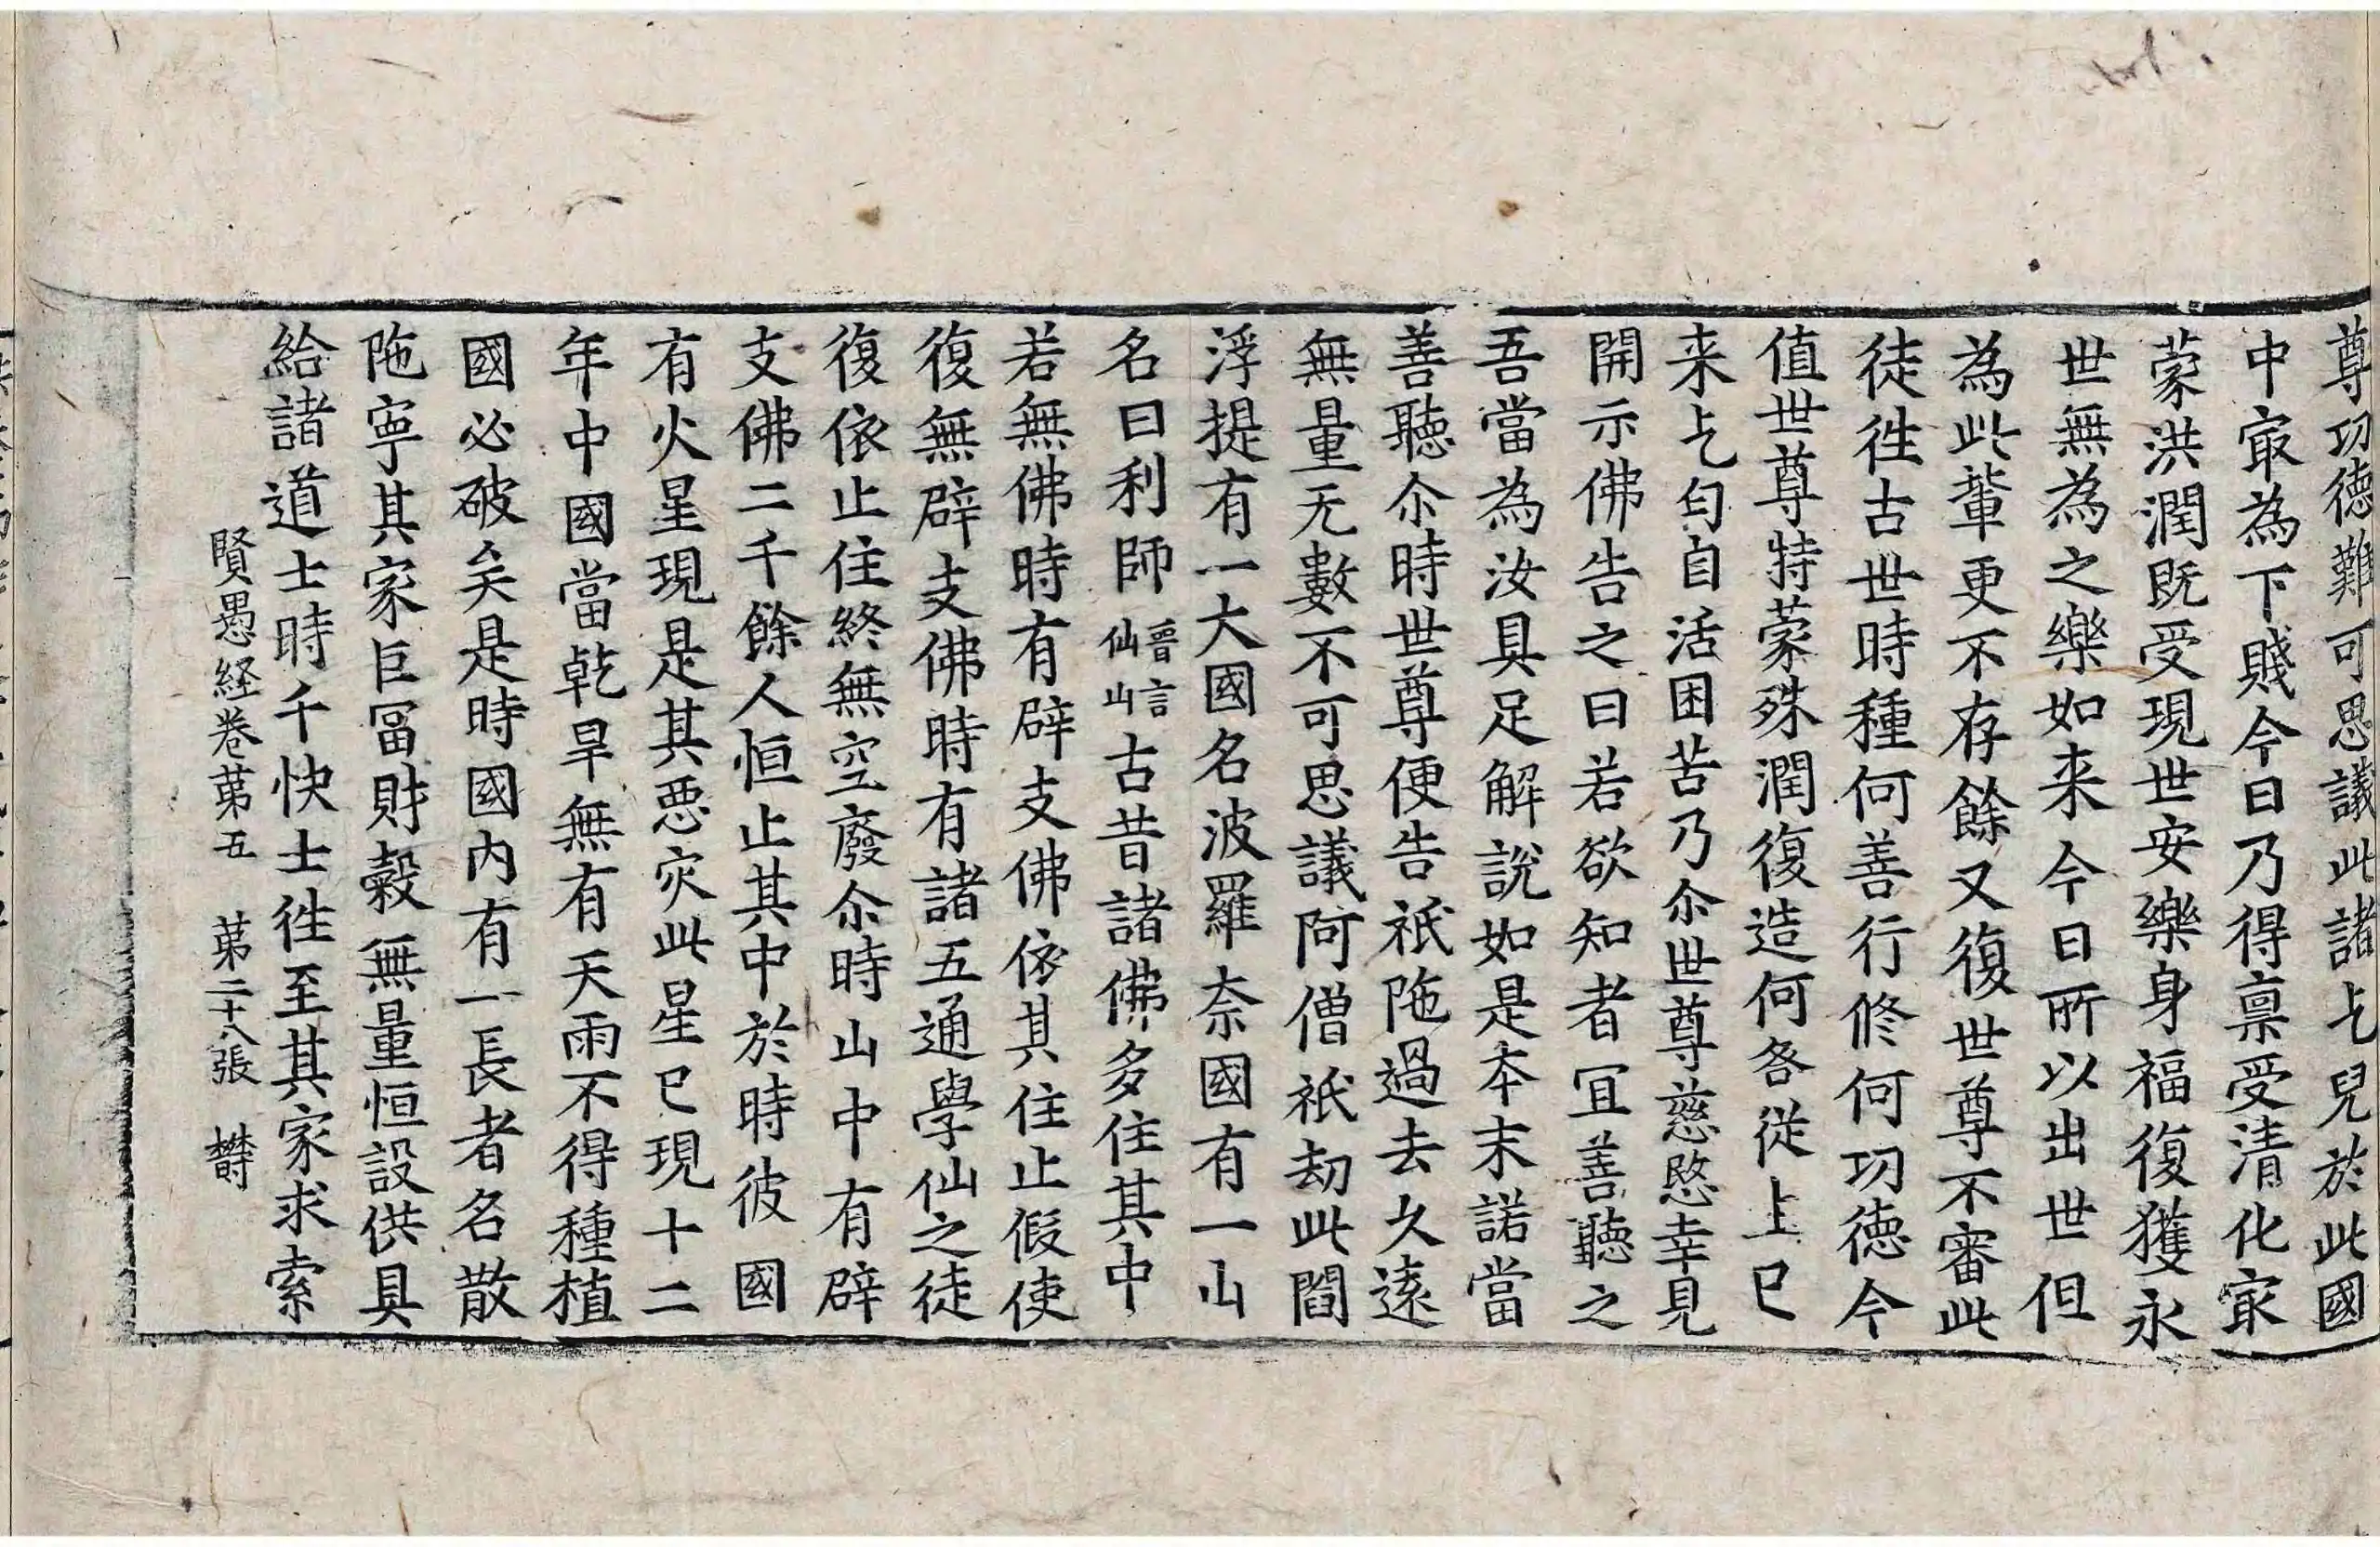 尊功德難可思議此諸乞兒於此國
中冣為下賤今日乃得禀受清化冣
蒙洪潤既受現世安樂身福復獲永
世無為之樂如来今日所以出世但
為此輩更不存餘又復世尊不審此
徒徃古世時種何善行修何功德今
值世尊特蒙殊潤復造何咎從上已
来乞匄自活困苦乃尒世尊慈愍幸見
開示佛告之曰若欲知者冝善聽之
吾當為汝具足解說如是本末諾當
善聽尒時世尊便告祇陁過去久遠
無量无數不可思議阿僧祇劫此閻
浮提有一大國名波羅奈國有一山
名曰利師晉言仙山古昔諸佛多住其中
若無佛時有辟支佛依其住止假使
復無辟支佛時有諸五通學仙之徒
復依止住終無空廢尒時山中有辟
支佛二千餘人恒止其中於時彼國
有火星現是其惡灾此星已現十二
年中國當乾旱無有天雨不得種植
國必破矣是時國内有一長者名散
陁寧其家巨冨財穀無量恒設供具
給諸道士時千快士徃至其家求索
賢愚経卷苐五 苐二十八張